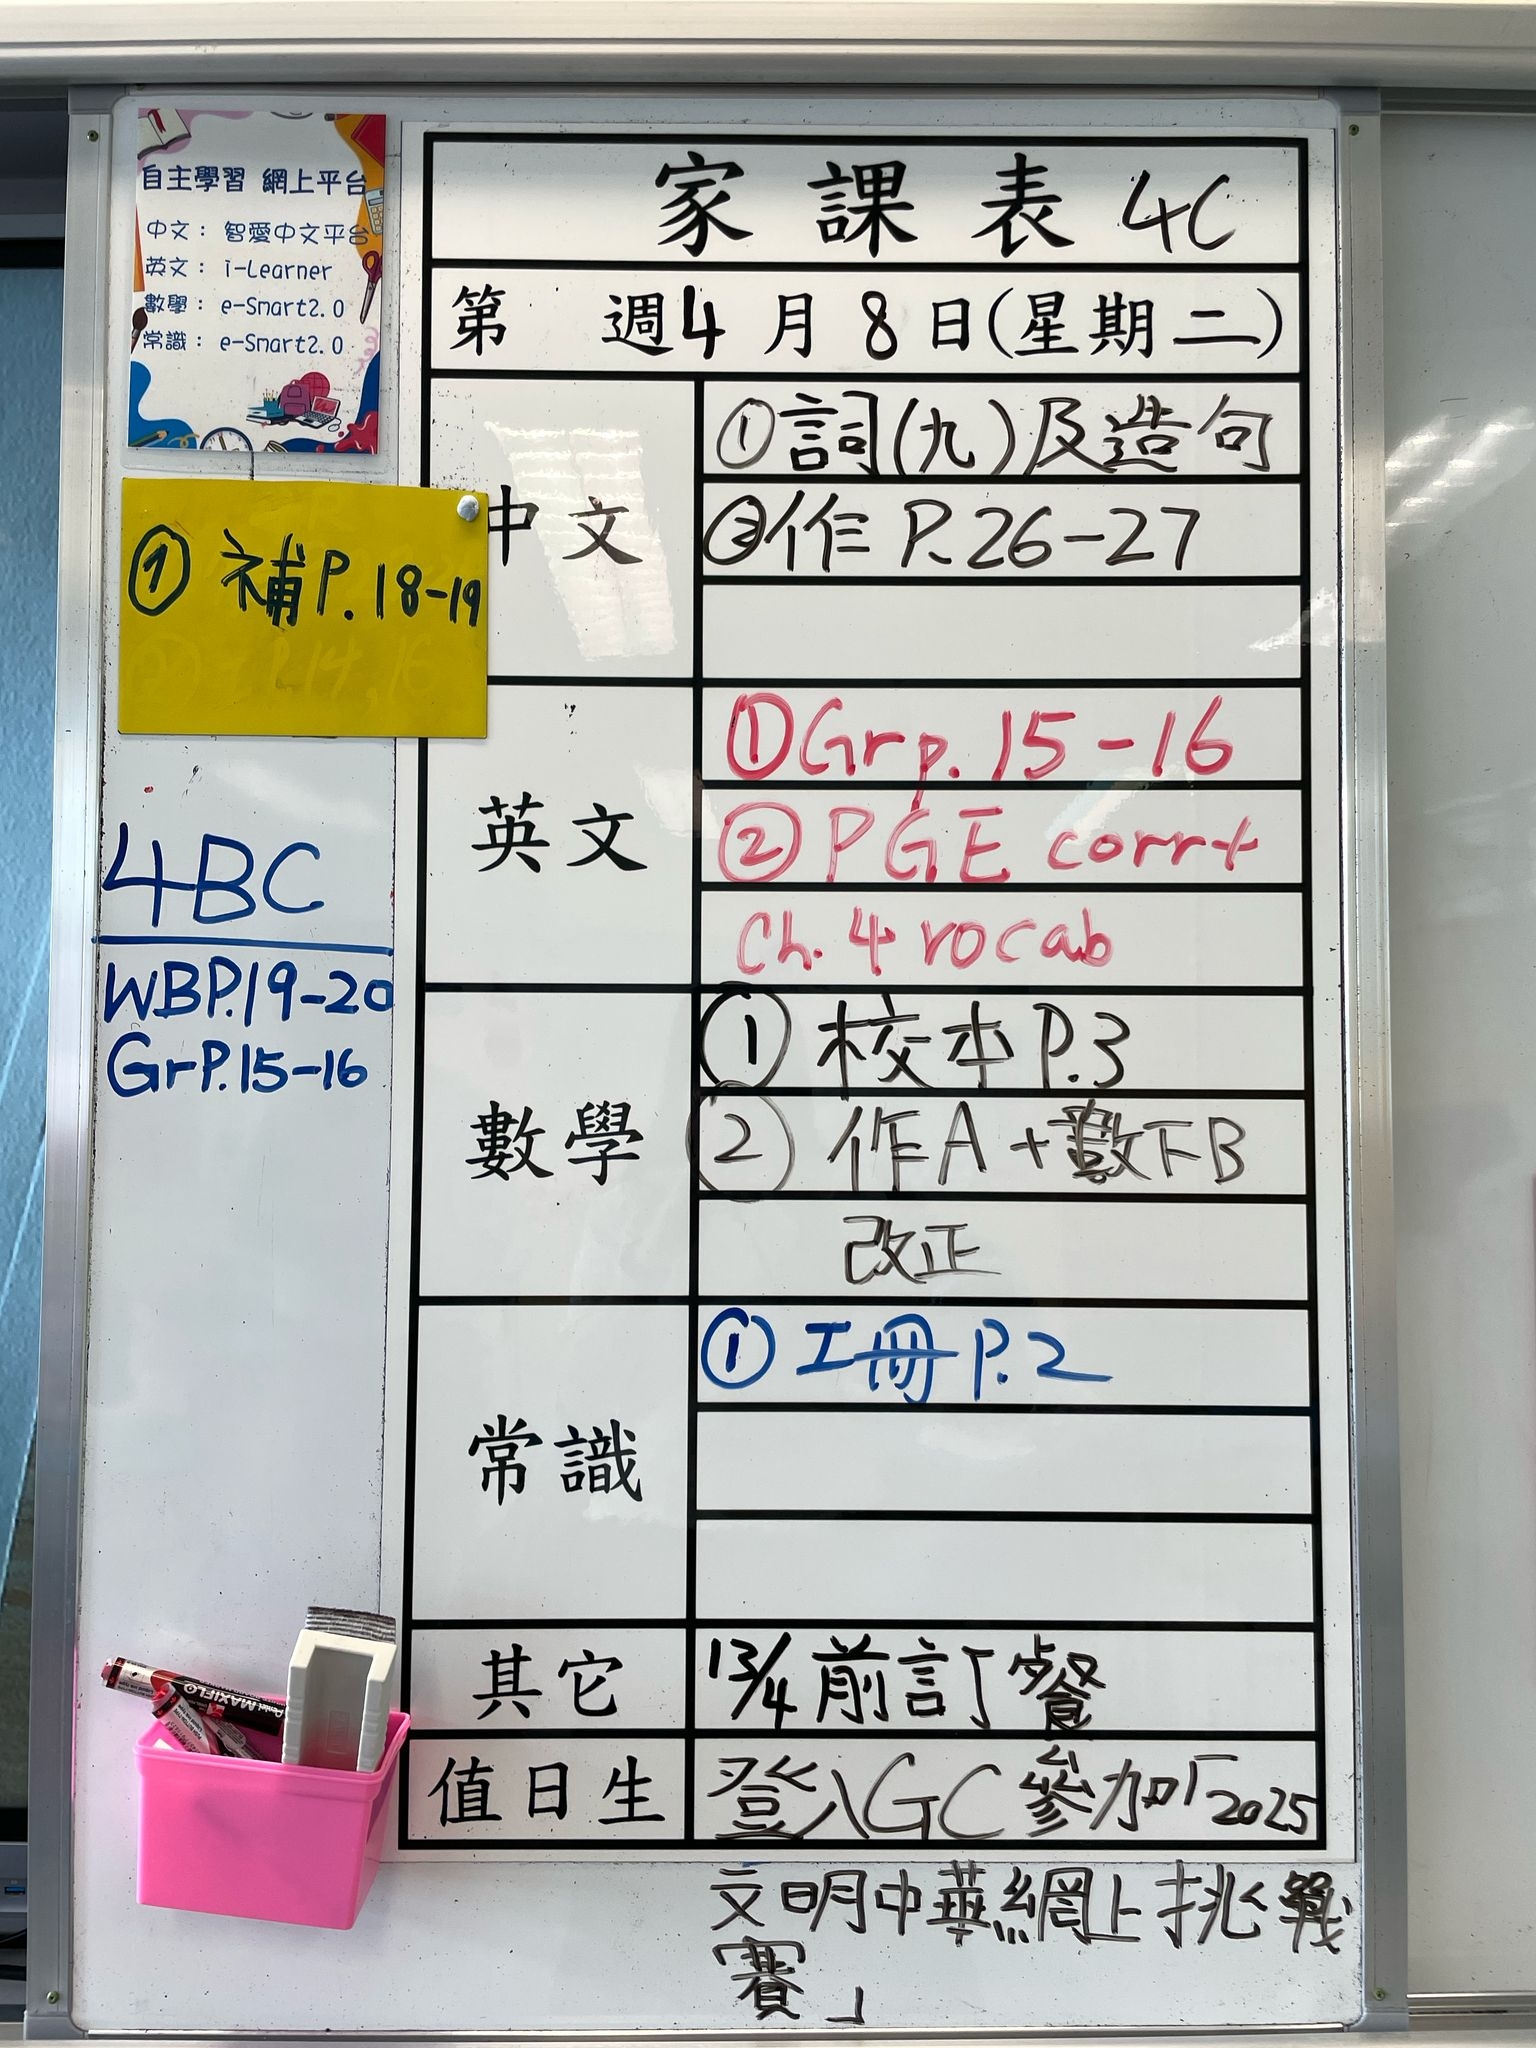 自主學習 網上平台
中文： 智愛中文平台
英文： i-Learner
數學： e-Smart2.0
常識： e-Smart2.0
① 補P.18-19
4BC
WBP.19-20
GrP.15-16
家課表 4C
第 週4月8日(星期二)
中文
①詞(九)及造句
②作 P.26-27
英文
①Gr p. 15-16
②PGE corr+
Ch. 4 vocab
數學
① 校本 P.3
② 作A+數下B
改正
常識
① 工冊 P.2
其它
13/4前訂餐
值日生
登入GC參加「2025
文明中華網上挑戰
賽」